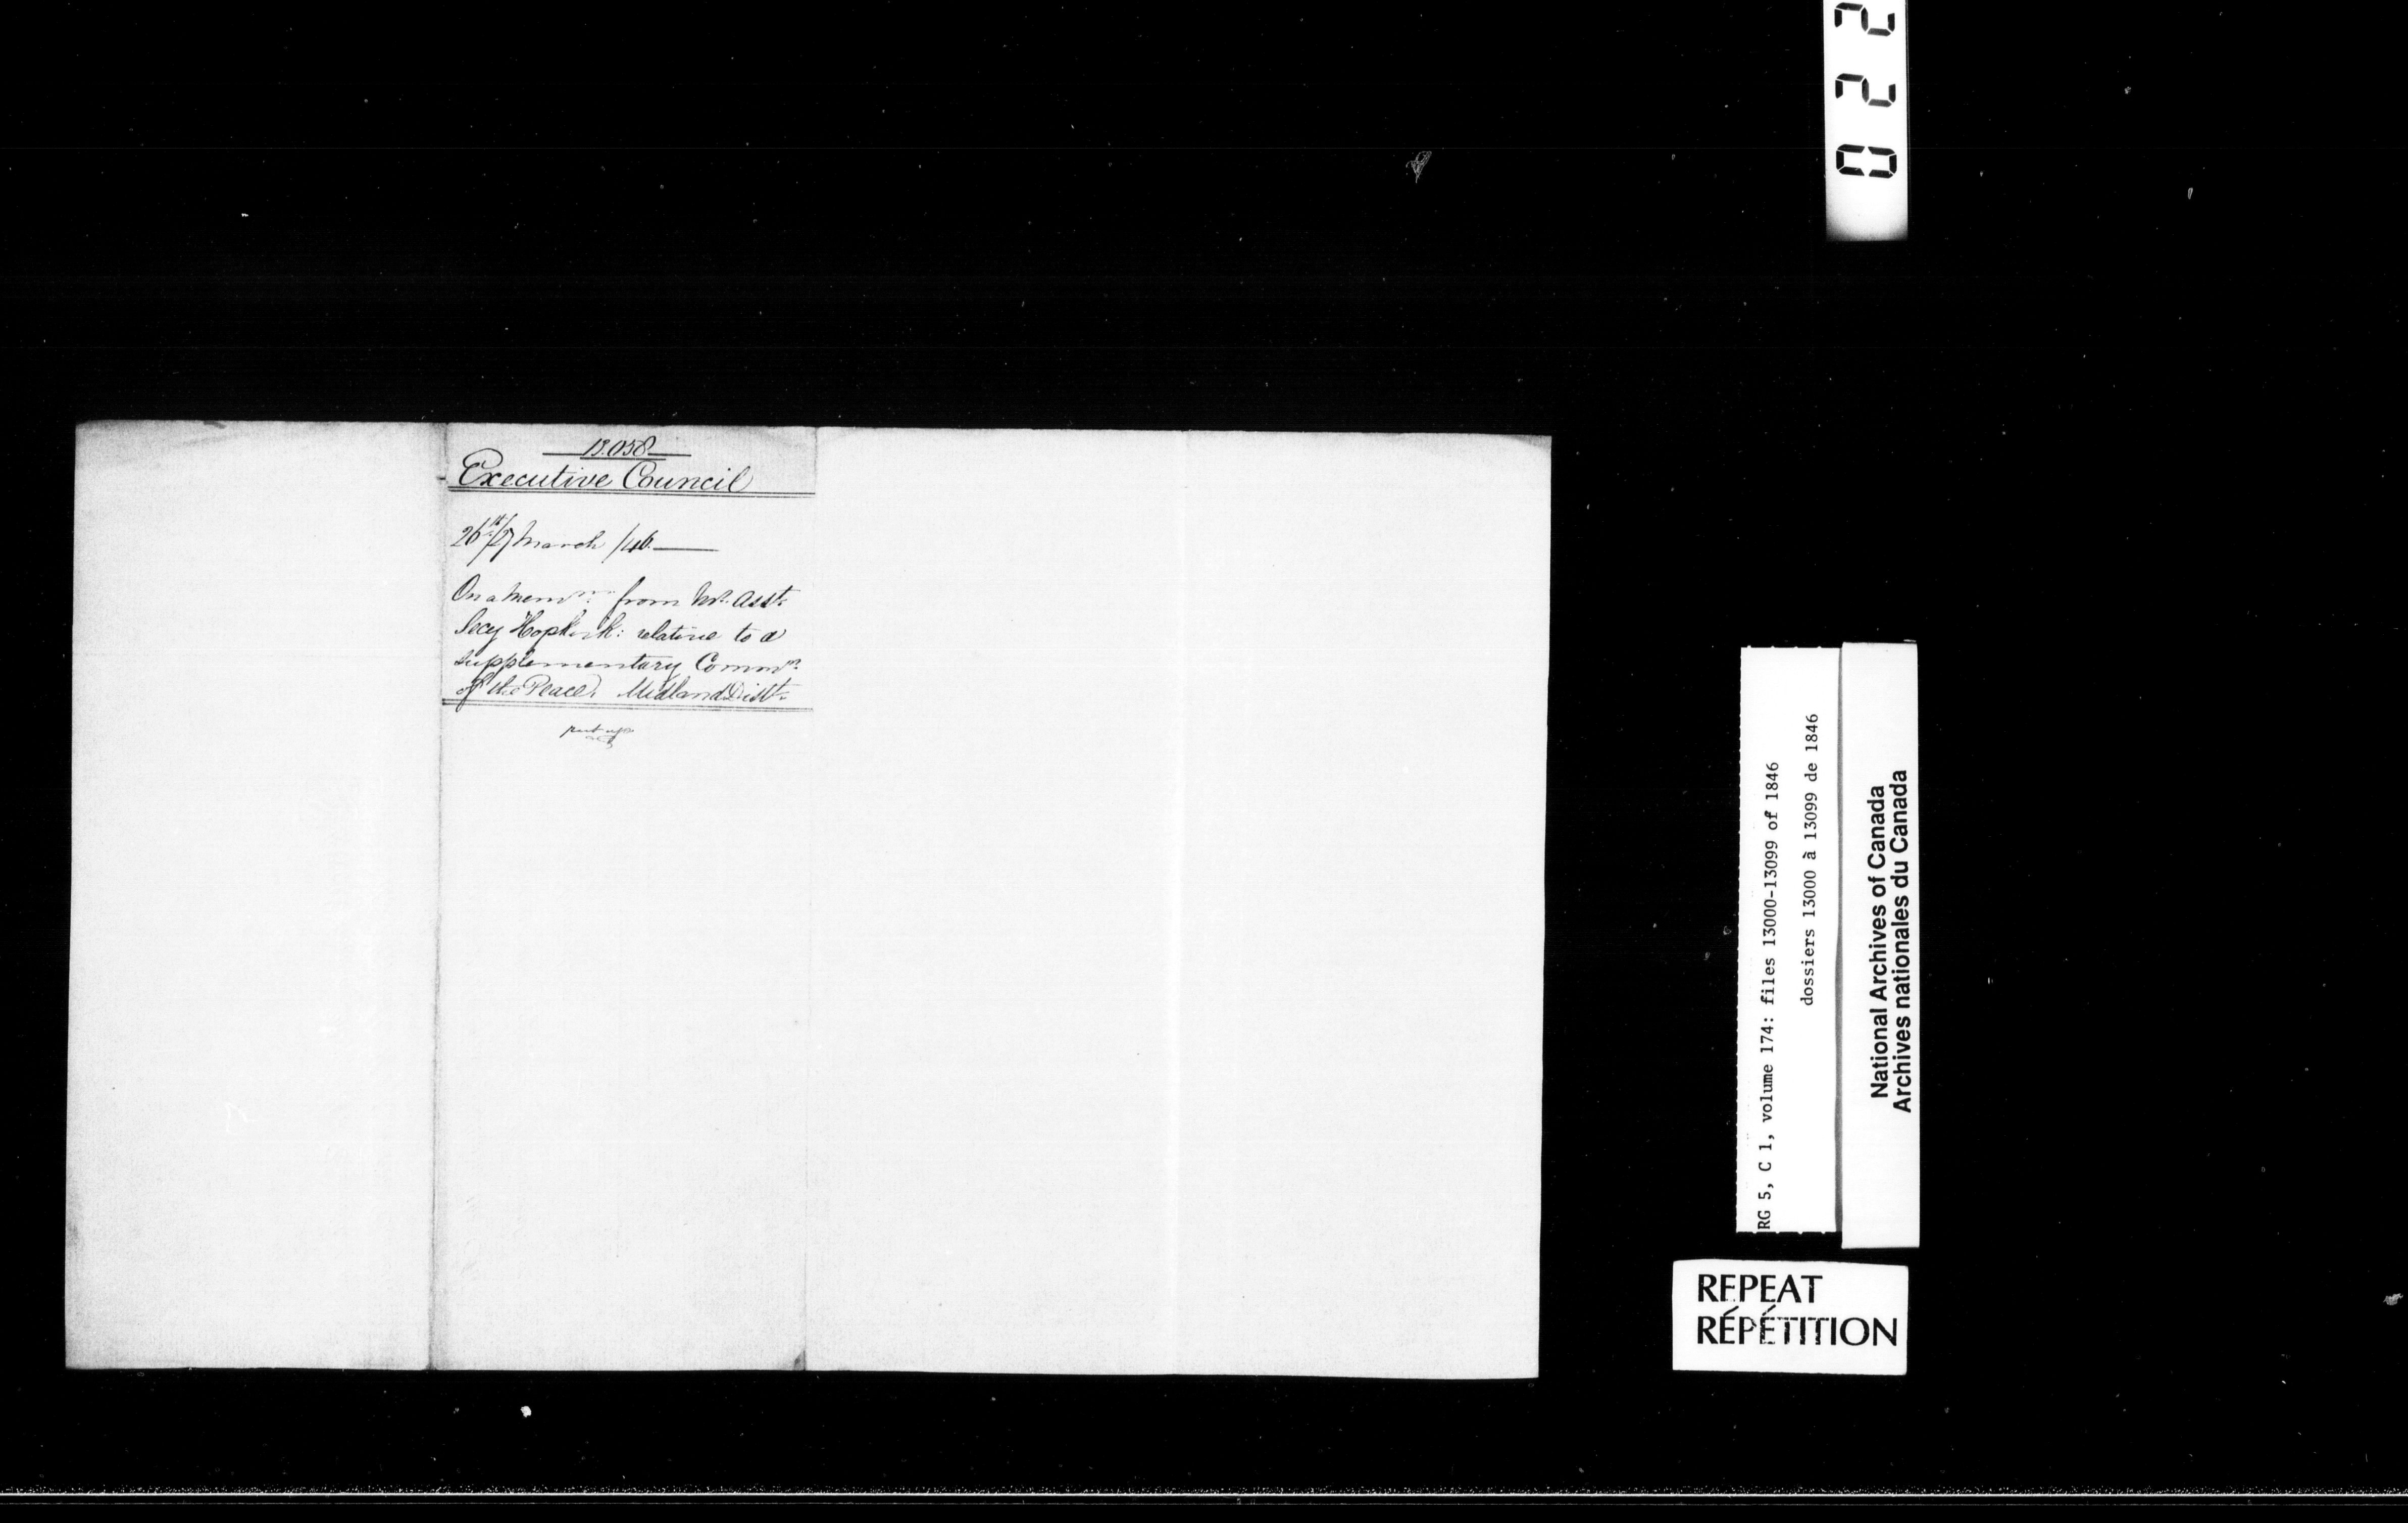 13.058
Executive Council
26th/27 March /46.
On a Memm. from Mr. Asst.
Secy Hopkirk: relative to a
supplementary Commn.
of the Peace. Midland Distt.
put up
RG 5, C 1, volume 174: files 13000-13099 of 1846
dossiers 13000 à 13099 de 1846
National Archives of Canada
Archives nationales du Canada
REPEAT
RÉPÉTITION
022